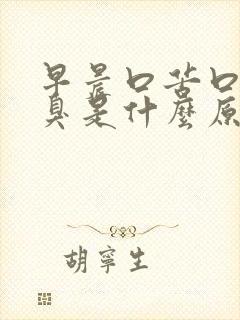 早晨口苦口
臭是什麼原
胡寧生